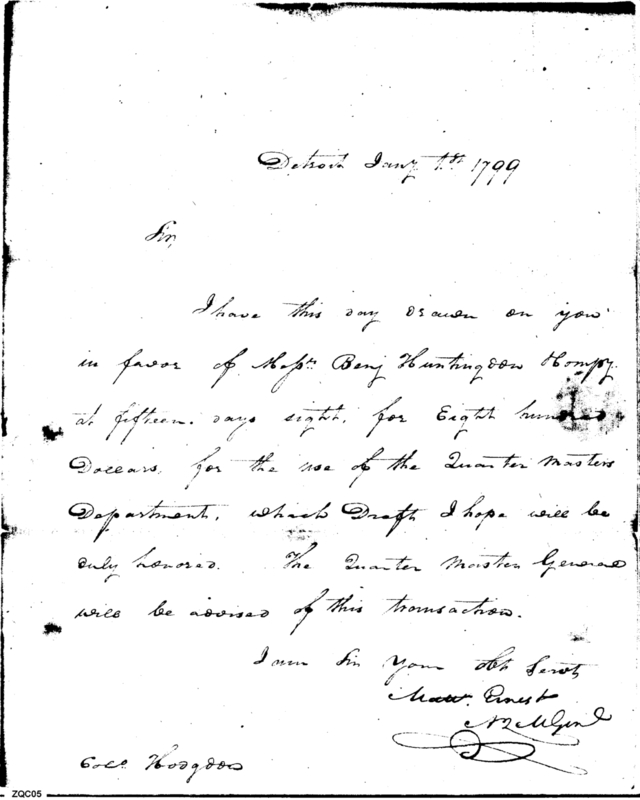 Detroit Jany 1st 1799
Sir,
I have this day drawn on you
in favor of Messrs. Benj Huntingdon & Compy
at fifteen days sight, for Eight hundred
Dollars, for the use of the Quarter Masters
Department, which Draft I hope will be
duly honored. The Quarter Master General
will be advised of this transaction.
I am Sir Your obt Servt
Matw. Ernest
Colo. Hodgdon
ZQC05